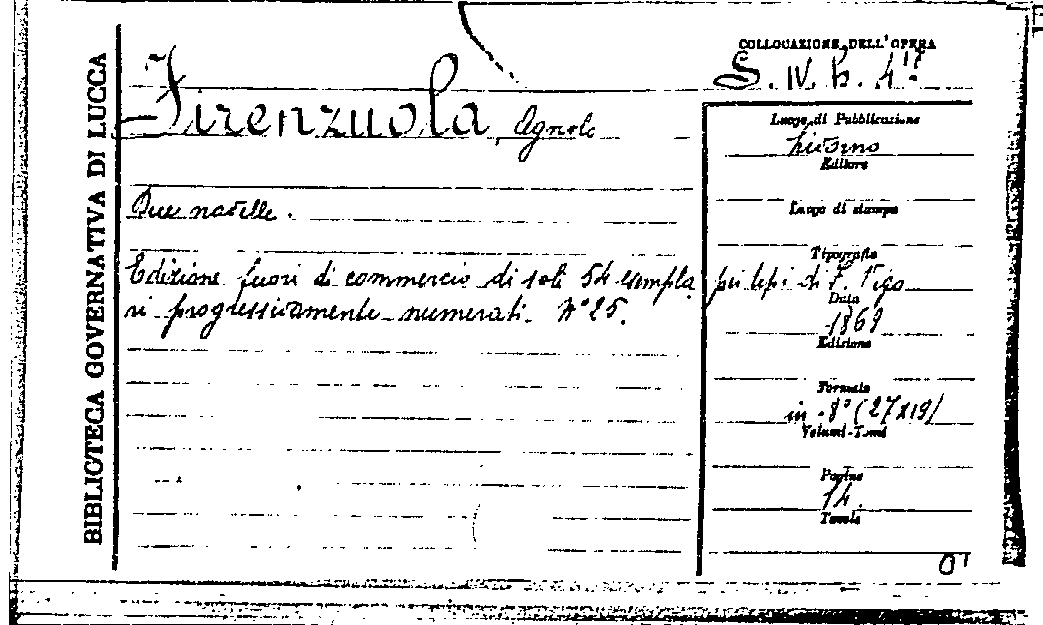 BIBLIOTECA GOVERNATIVA DI LUCCA
COLLOCAZIONE DELL'OPERA
S. IV. b. 4
Firenzuola, Agnolo
Due novelle.
Edizione fuori di commercio di soli 54 esempla
ri progressivamente numerati. N° 25.
Luogo di Pubblicazione
Livorno
Editore
Luogo di stampa
Tipografia
pei tipi di F. Vigo
Data
1869
Edizione
Formato
in-8° (27x19)
Volumi-Tomi
Pagine
14.
Tavole